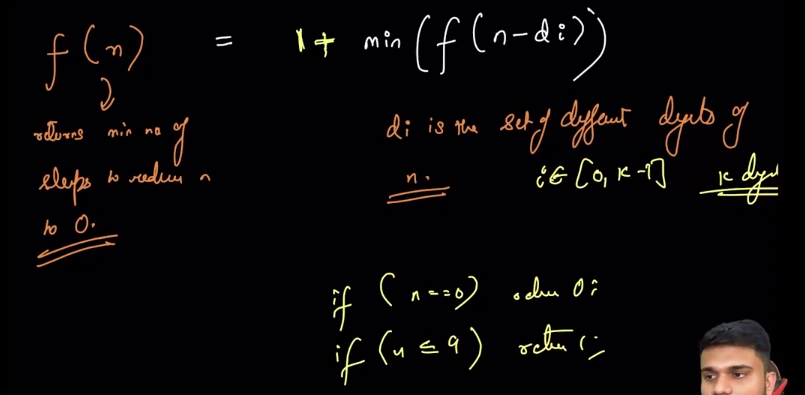 f(n) = 1+ min(f(n-di))
returns min no of
steps to reduce n
to 0.
di is the set of different digits of
n. i∈[0, k-1] k digit
if (n==0) return 0;
if (n ≤ 9) return 1;